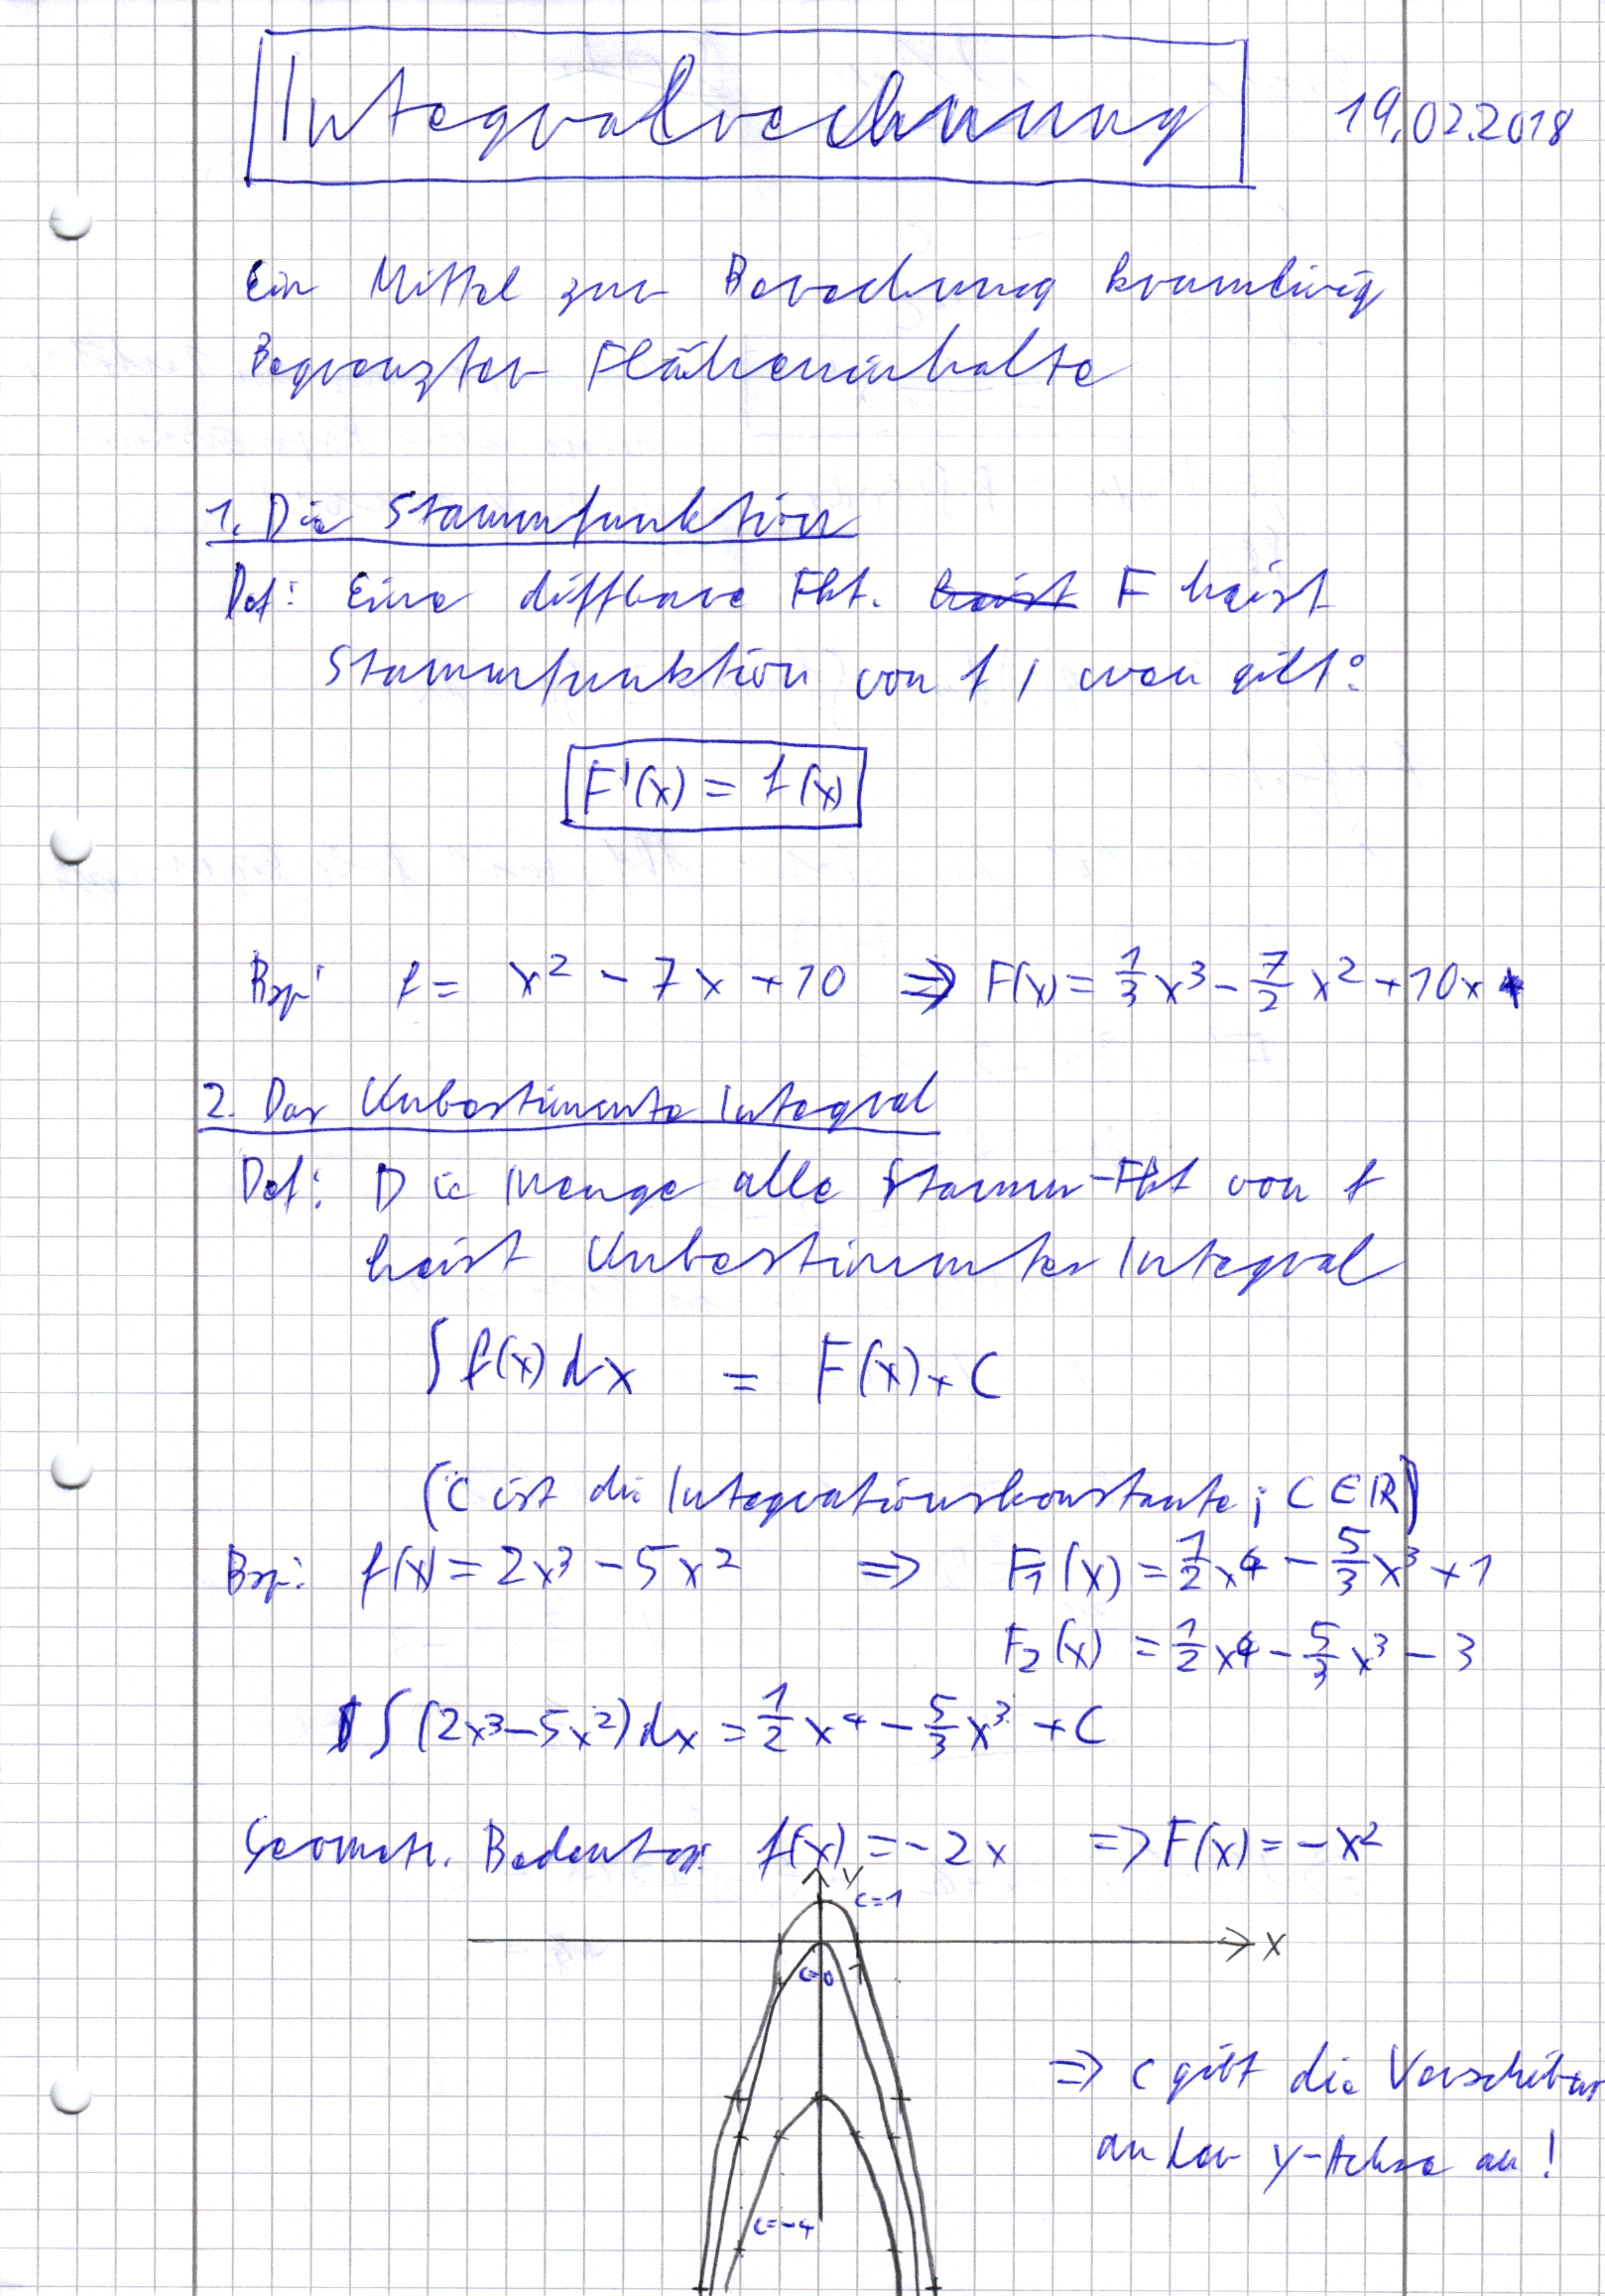 Integralrechnung 19.02.2018
Ein Mittel zur Berechnung krumlinig
Begrenzter Flächeninhalte
1. Die Stammfunktion
Def: Eine diffbare Fkt. F heist
Stammfunktion von f, wen gilt:
F'(x) = f(x)
Bsp: f = x² - 7x + 10 => F(x) = 1/3 x³ - 7/2 x² + 10x
2. Das Unbestimmte Integral
Def: Die Menge alle Stamm-Fkt von f
heist Unbestimmtes Integral
∫ f(x) dx = F(x) + C
(C ist die Integrationskonstante; C ∈ ℝ)
Bsp: f(x) = 2x³ - 5x² => F₁(x) = 1/2 x⁴ - 5/3 x³ + 1
F₂(x) = 1/2 x⁴ - 5/3 x³ - 3
∫ (2x³ - 5x²) dx = 1/2 x⁴ - 5/3 x³ + C
Geometr. f(x) = -2x => F(x) = -x²
y
c=1
x
c=0
=> c gibt die
an der y-Achse an!
c=-4